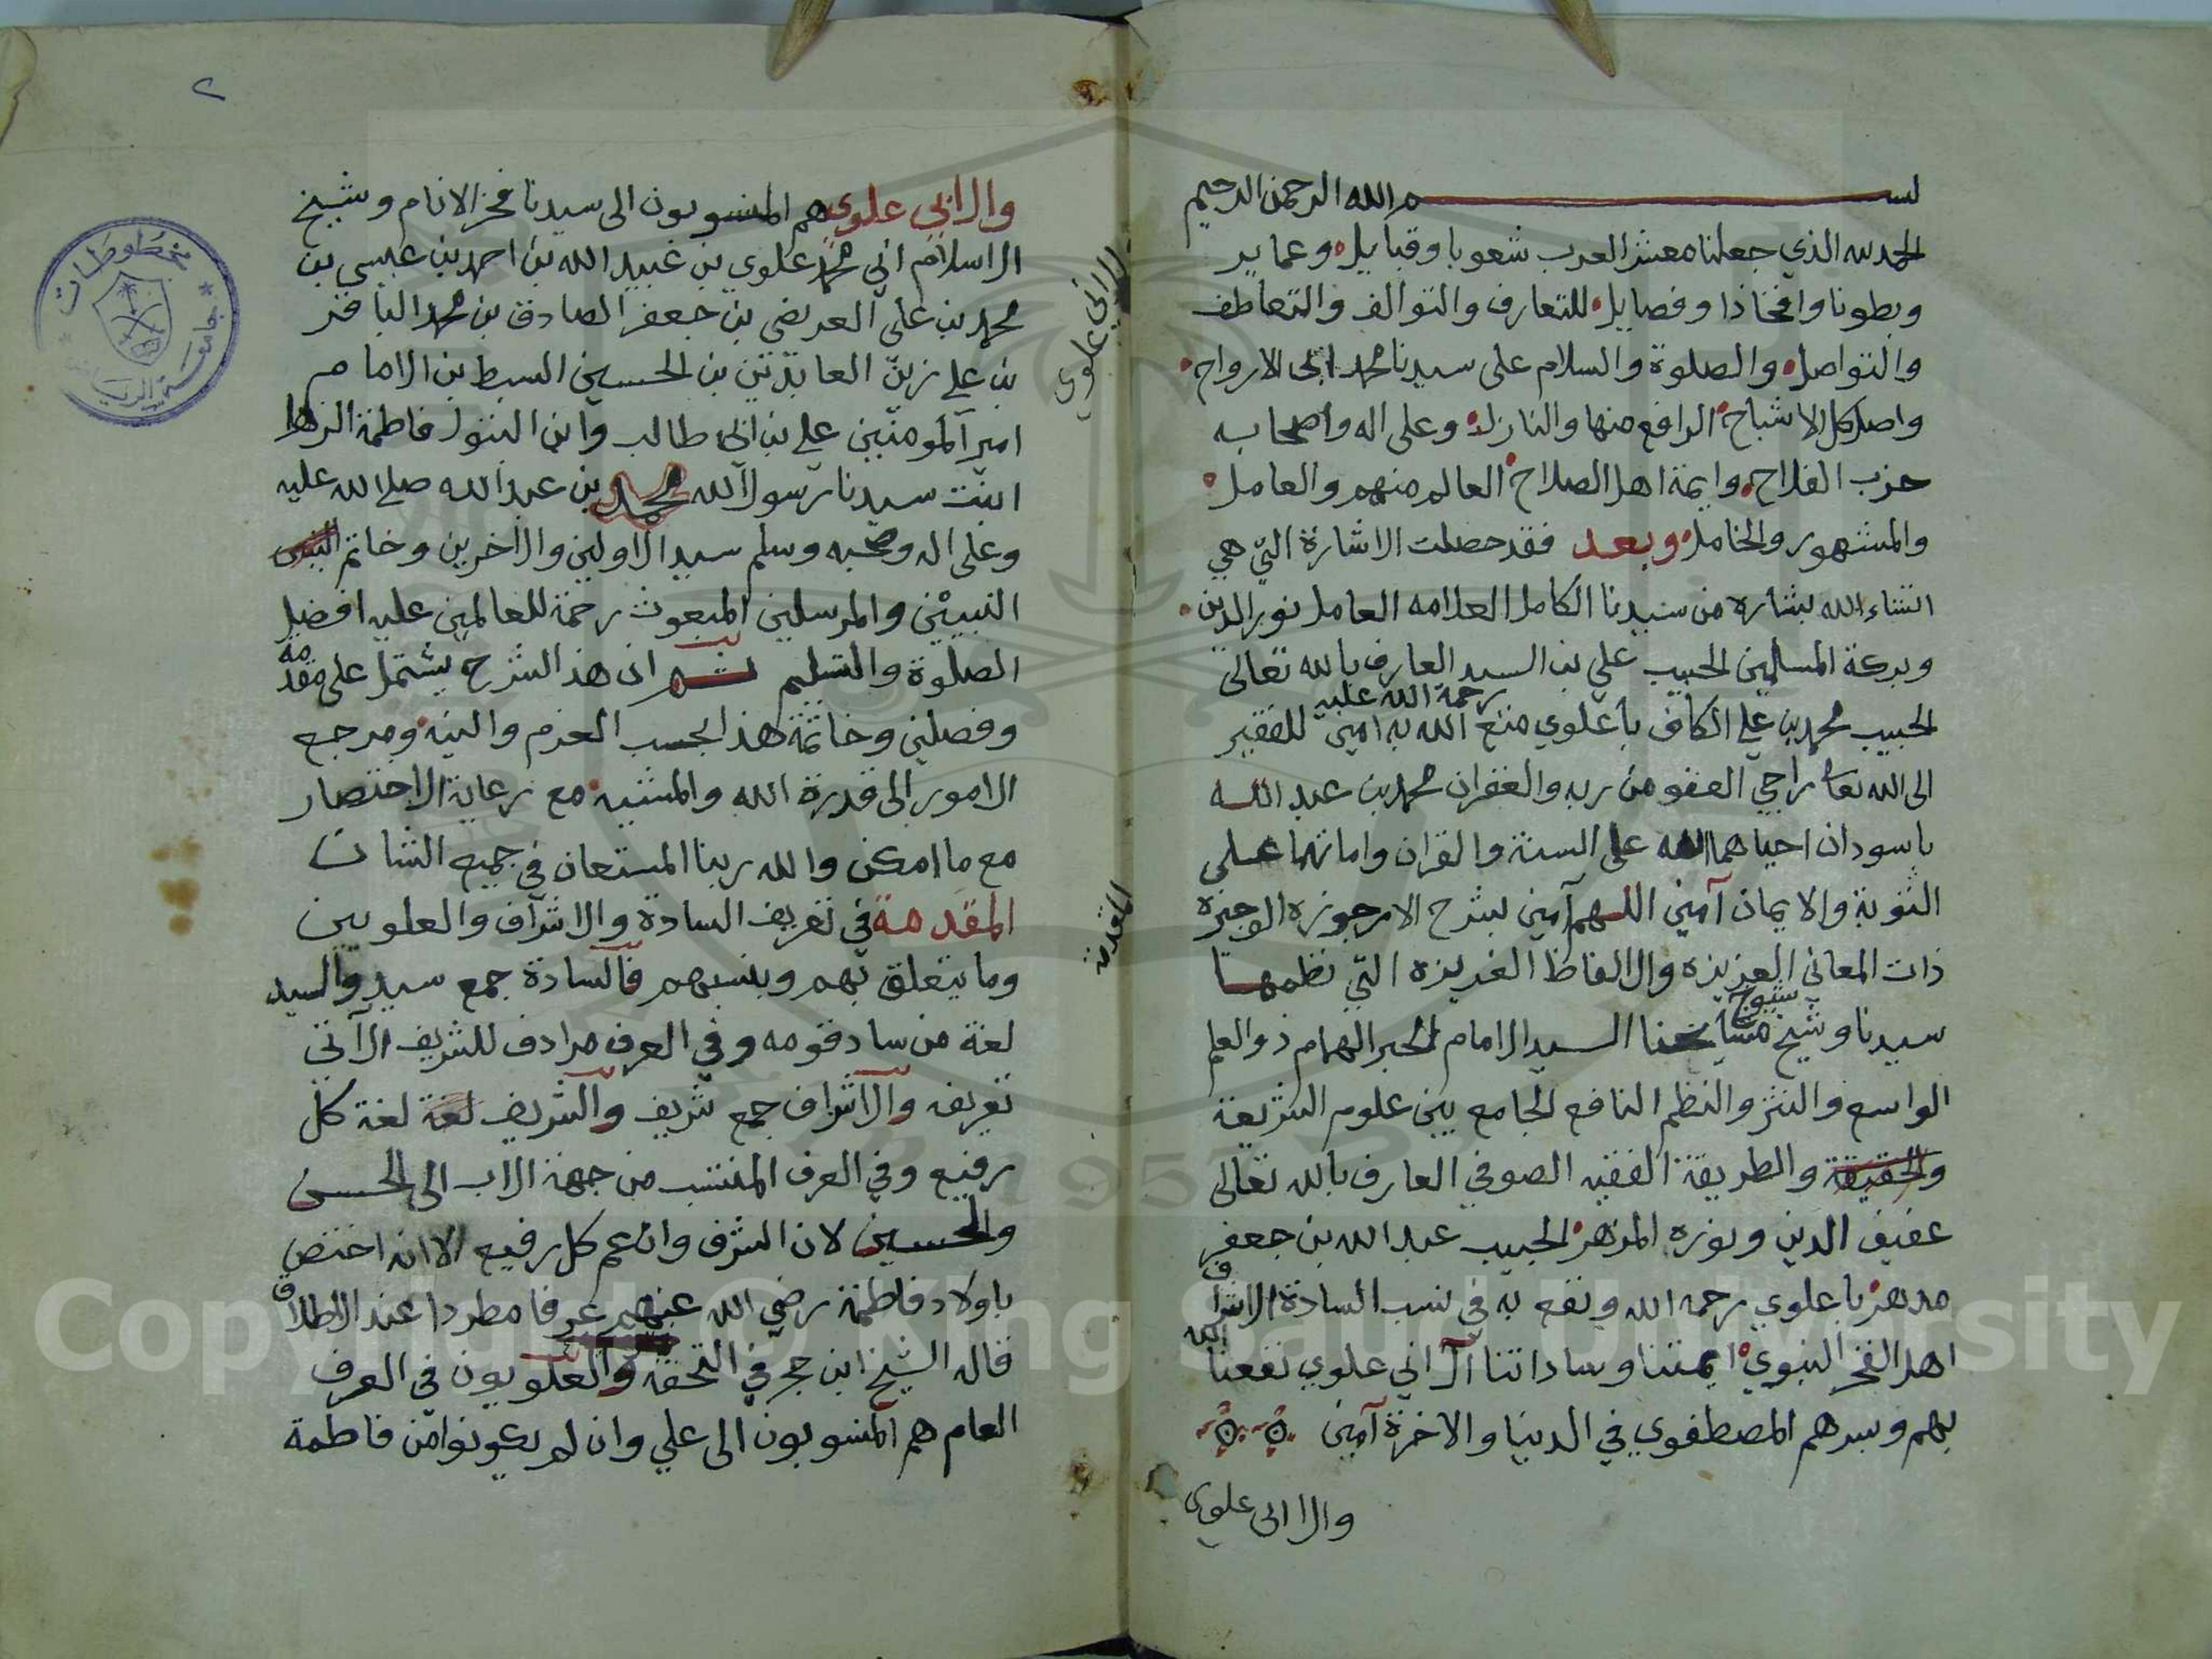 بسم الله الرحمن الرحيم
الحمد لله الذي جعلنا معشر العرب شعوبا وقبايل وعماير
وبطونا وافخاذا وفصايل للتعارف والتوالف والتعاطف
والتواصل والصلوة والسلام على سيدنا محمد ابى الارواح
واصل كل الاشباح الرافع منها والنازل وعلى اله واصحابه
حزب الفلاح وايمة اهل الصلاح العالم منهم والعامل
والمشهور والخامل وبعد فقد حصلت الاشارة التي هي
انشاء الله بشاره من سيدنا الكامل العلامه العامل نور الدين
وبركة المسلمين الحبيب علي بن السيد العارف بالله تعالى
رحمة الله عليه
الحبيب محمد بن علي الكاف باعلوي متع الله به امين للفقير
الى الله تعا راجي العفو من ربه والغفران محمد بن عبد الله
باسودان احياهما الله على السنة والقران واماتهما على
التوبة والايمان آمين اللهم آمين بشرح الارجوزه الوجيزه
ذات المعاني العزيزه والالفاظ الغريزه التي نظمها
شيوخ
سيدنا وشيخ مشايخنا السيد الامام الحبر الهمام ذو العلم
الواسع والنثر والنظم النافع الجامع بين علوم الشريعة
والحقيقة والطريقة الفقيه الصوفي العارف بالله تعالى
عفيف الدين ونوره المزهر الحبيب عبد الله بن جعفر
مدهر باعلوي رحمه الله ونفع به في نسب السادة الاشراف
اهل الفخر النبوي ايمتنا وساداتنا آل ابي علوي نفعنا الله
بهم وبسرهم المصطفوي في الدنيا والاخرة آمين
وال ابى علوي
٢
وال ابي علوي هم المنسوبون الى سيدنا فخر الانام وشيخ
الاسلام ابي محمد علوي بن عبيد الله بن احمد بن عيسى بن
محمد بن على العريضي بن جعفر الصادق بن محمد الباقر
بن علي زين العابدين بن الحسين السبط بن الامام
امير المومنين علي بن ابى طالب وابن البتول فاطمة الزهرا
ابنت سيدنا رسول الله محمد بن عبد الله صلى الله عليه
وعلى اله وصحبه وسلم سيد الاولين والاخرين وخاتم
النبيين والمرسلين المبعوث رحمة للعالمين عليه افضل
الصلوة والتسليم ثم ان هذ الشرح يشتمل على مقدمه
وفصلين وخاتمة هذ الجسب العزم والنيه ومرجع
الامور الى قدرة الله والمشيه مع رعاية الاختصار
مع ما امكن والله ربنا المستعان في جميع الشان
المقدمة في تعريف السادة والاشراف والعلويين
وما يتعلق بهم وبنسبهم فالسادة جمع سيد والسيد
لغة من ساد قومه وفي العرف مرادف للشريف الآتي
تعريفه والاشراف جمع شريف والشريف لغة لغة كل
رفيع وفي العرف المنتسب من جهة الاب الى الحسن
والحسين لان الشرف وان عم كل رفيع الا انه اختص
باولاد فاطمة رضي الله عنهم عرفا مطردا عند الاطلاق
قاله الشيخ ابن حجر في التحفة والعلويون في العرف
العام هم المنسوبون الى علي وان لم يكونوا من فاطمة
ال ابي علوي
المقدمة
مخطوطات
جامعة الرياض
Copyright © King Saud University
1957